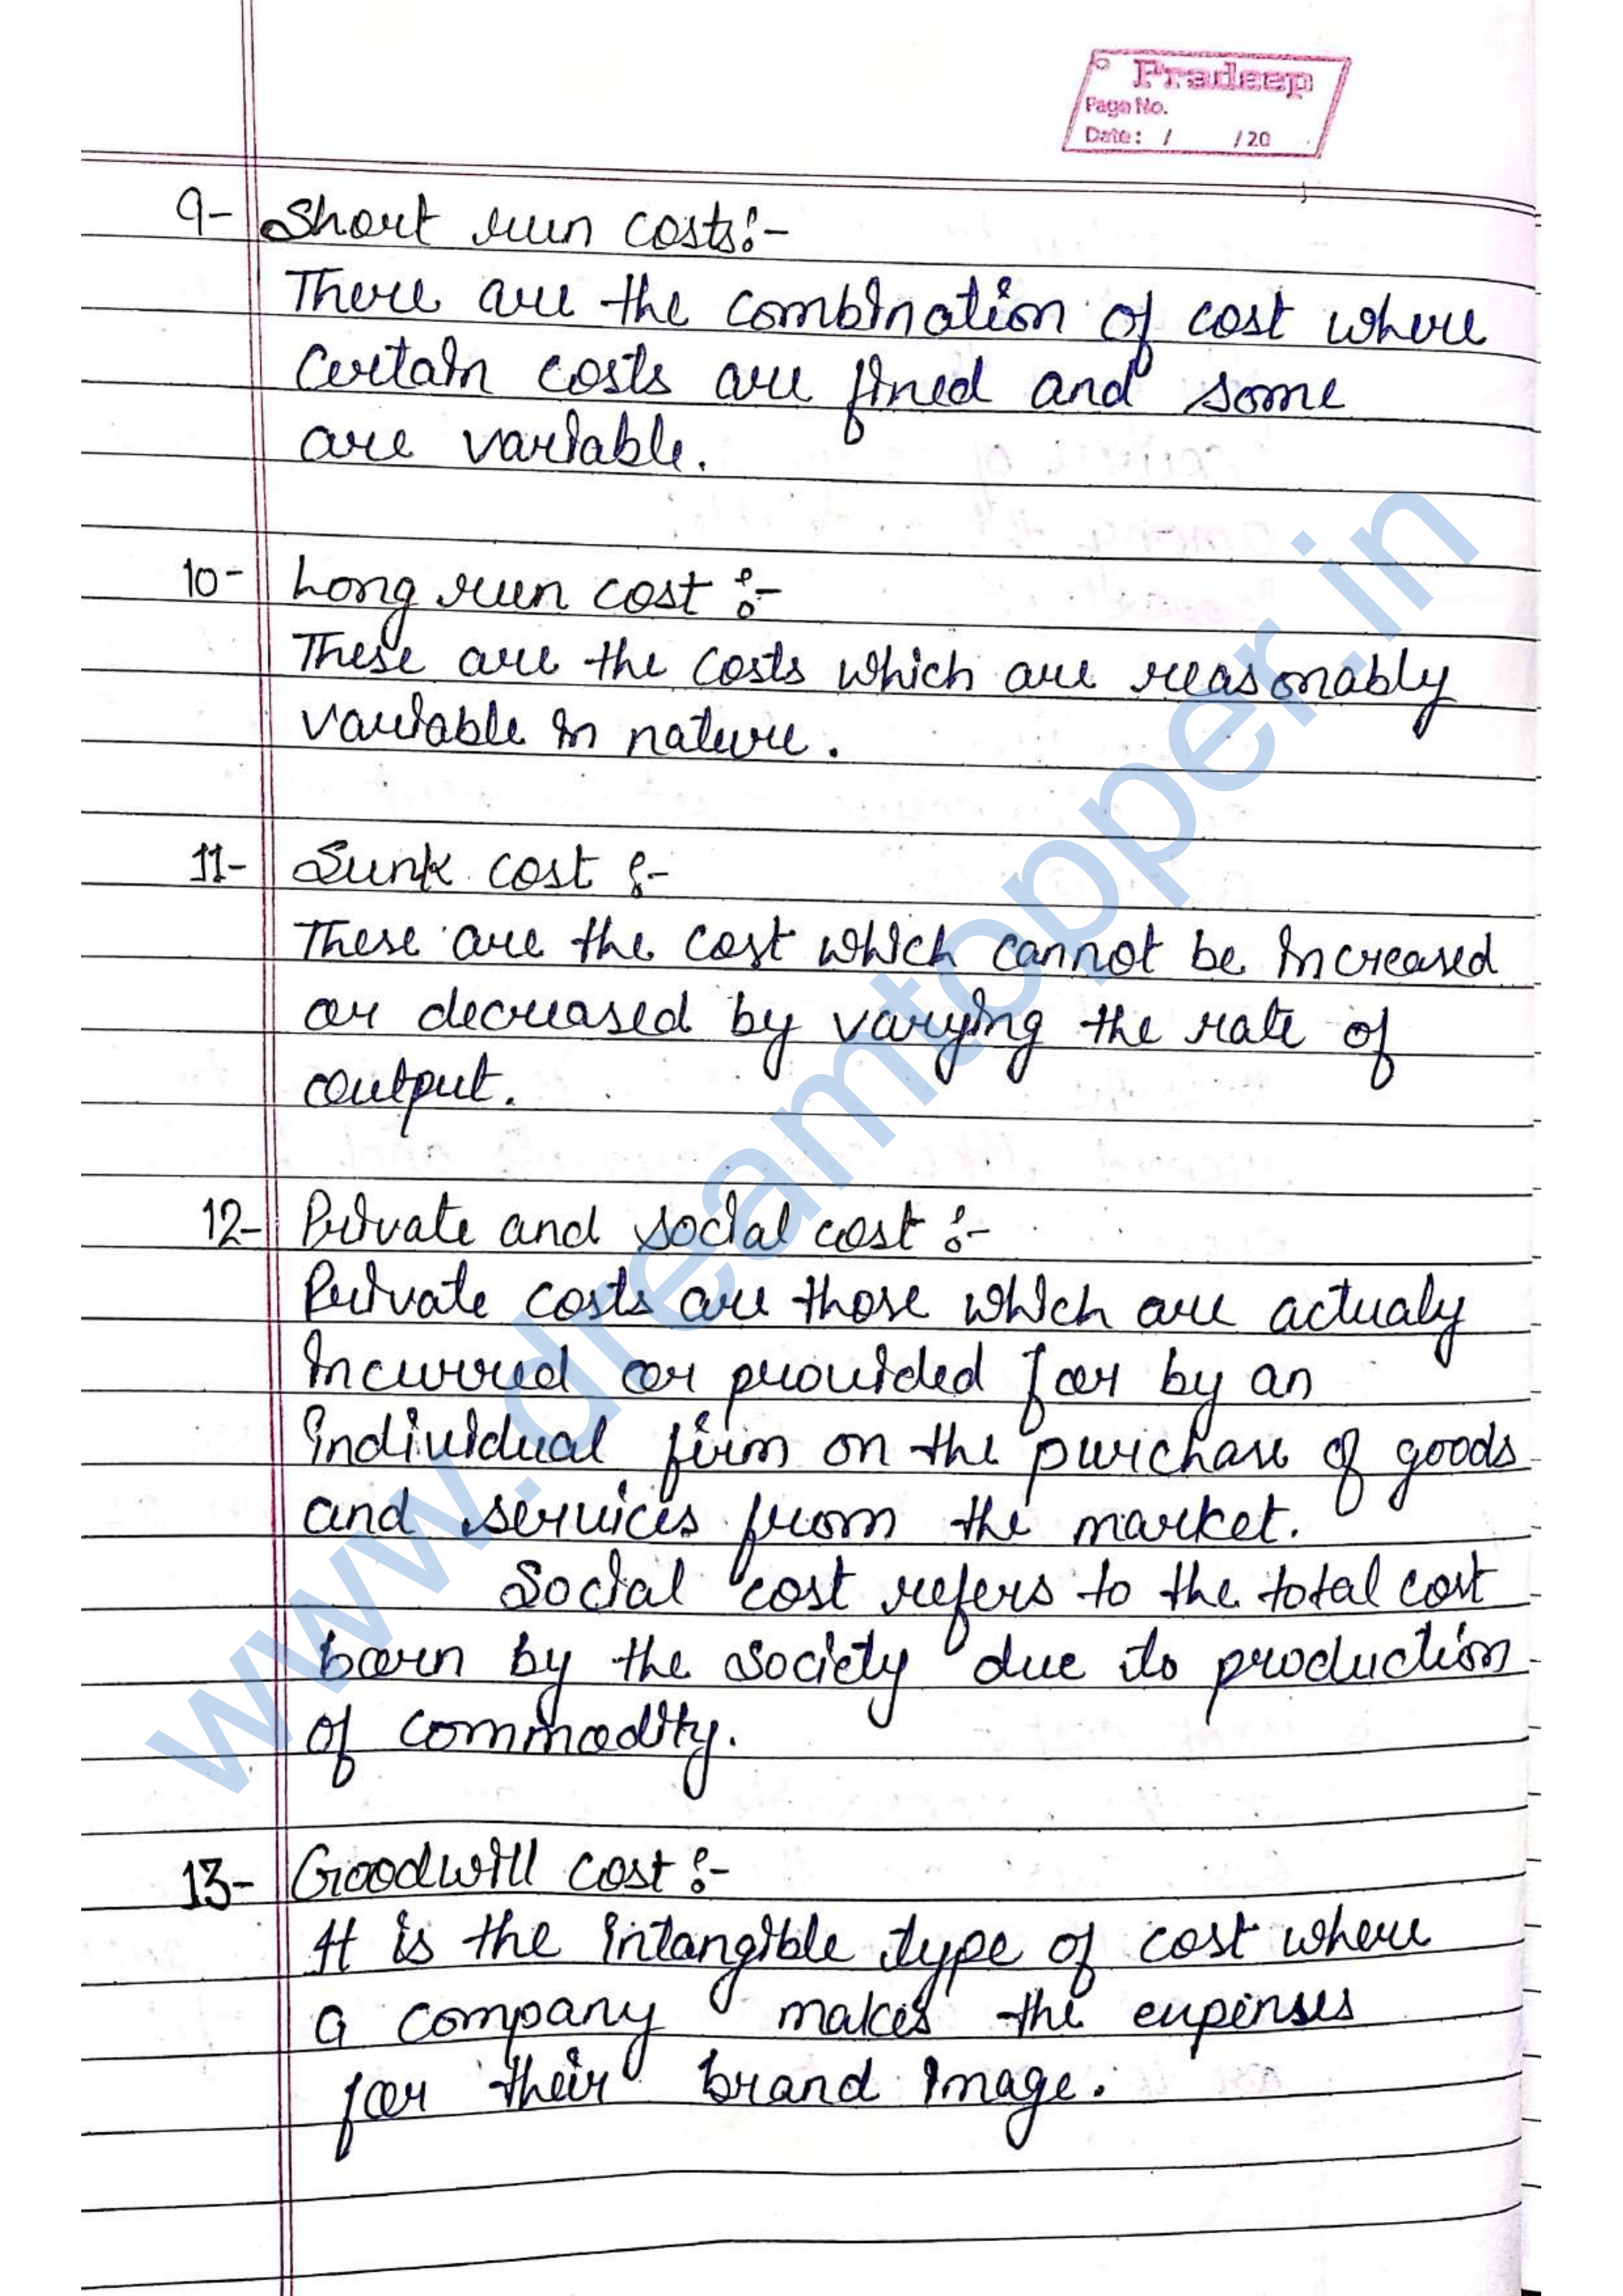 Pradeep
Page No.
Date: / /20
9- Short run costs:-
There are the combination of cost where
certain costs are fined and some
are variable.
10- Long run cost :-
These are the costs which are reasonably
variable in nature.
11- Sunk cost :-
These are the cost which cannot be increased
or decreased by varying the rate of
output.
12- Private and social cost :-
Private costs are those which are actualy
incurred or provided for by an
individual firm on the purchase of goods
and services from the market.
Social cost refers to the total cost
born by the society due to production
of commodity.
13- Goodwill cost :-
It is the intangible type of cost where
a company makes the expenses
for their brand image.
www.dreamtopper.in